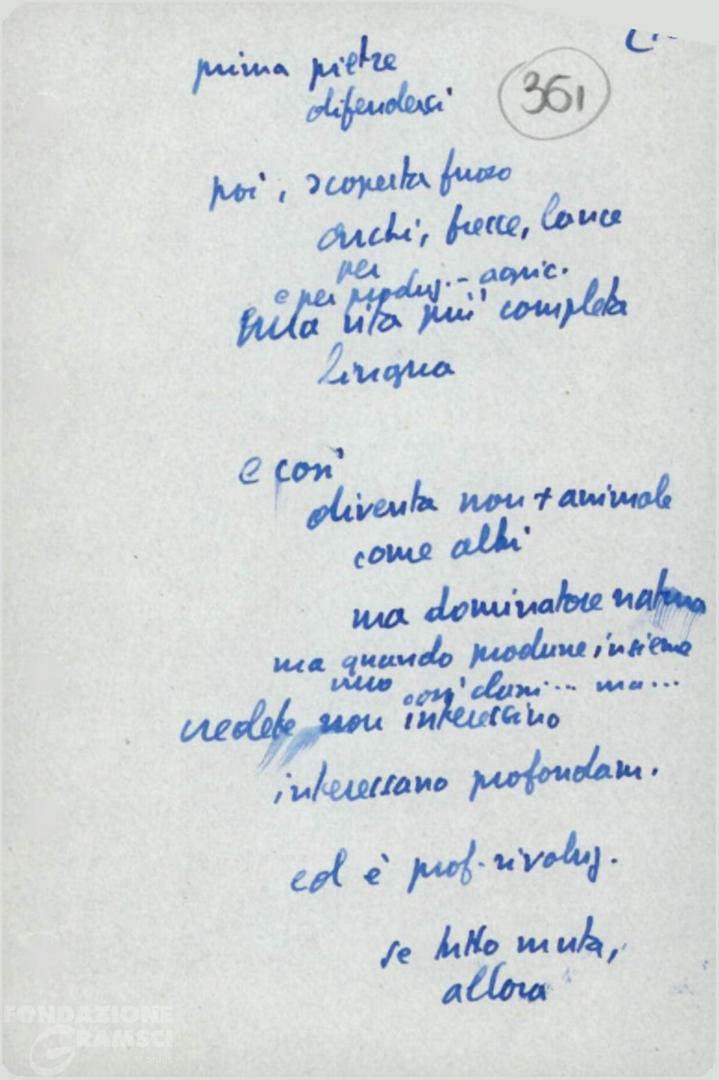 prima pietre
difendersi
361
poi, scoperta fuoco
archi, frecce, lance
per
e per produz. - agric.
tutta vita più completa
lingua
e così
diventa non + animale
come altri
ma dominatore natura
ma quando produrre insieme
così
credete non interessino
interessano profondam.
ed è prof. rivoluz.
se tutto muta,
allora
FONDAZIONE
GRAMSCI